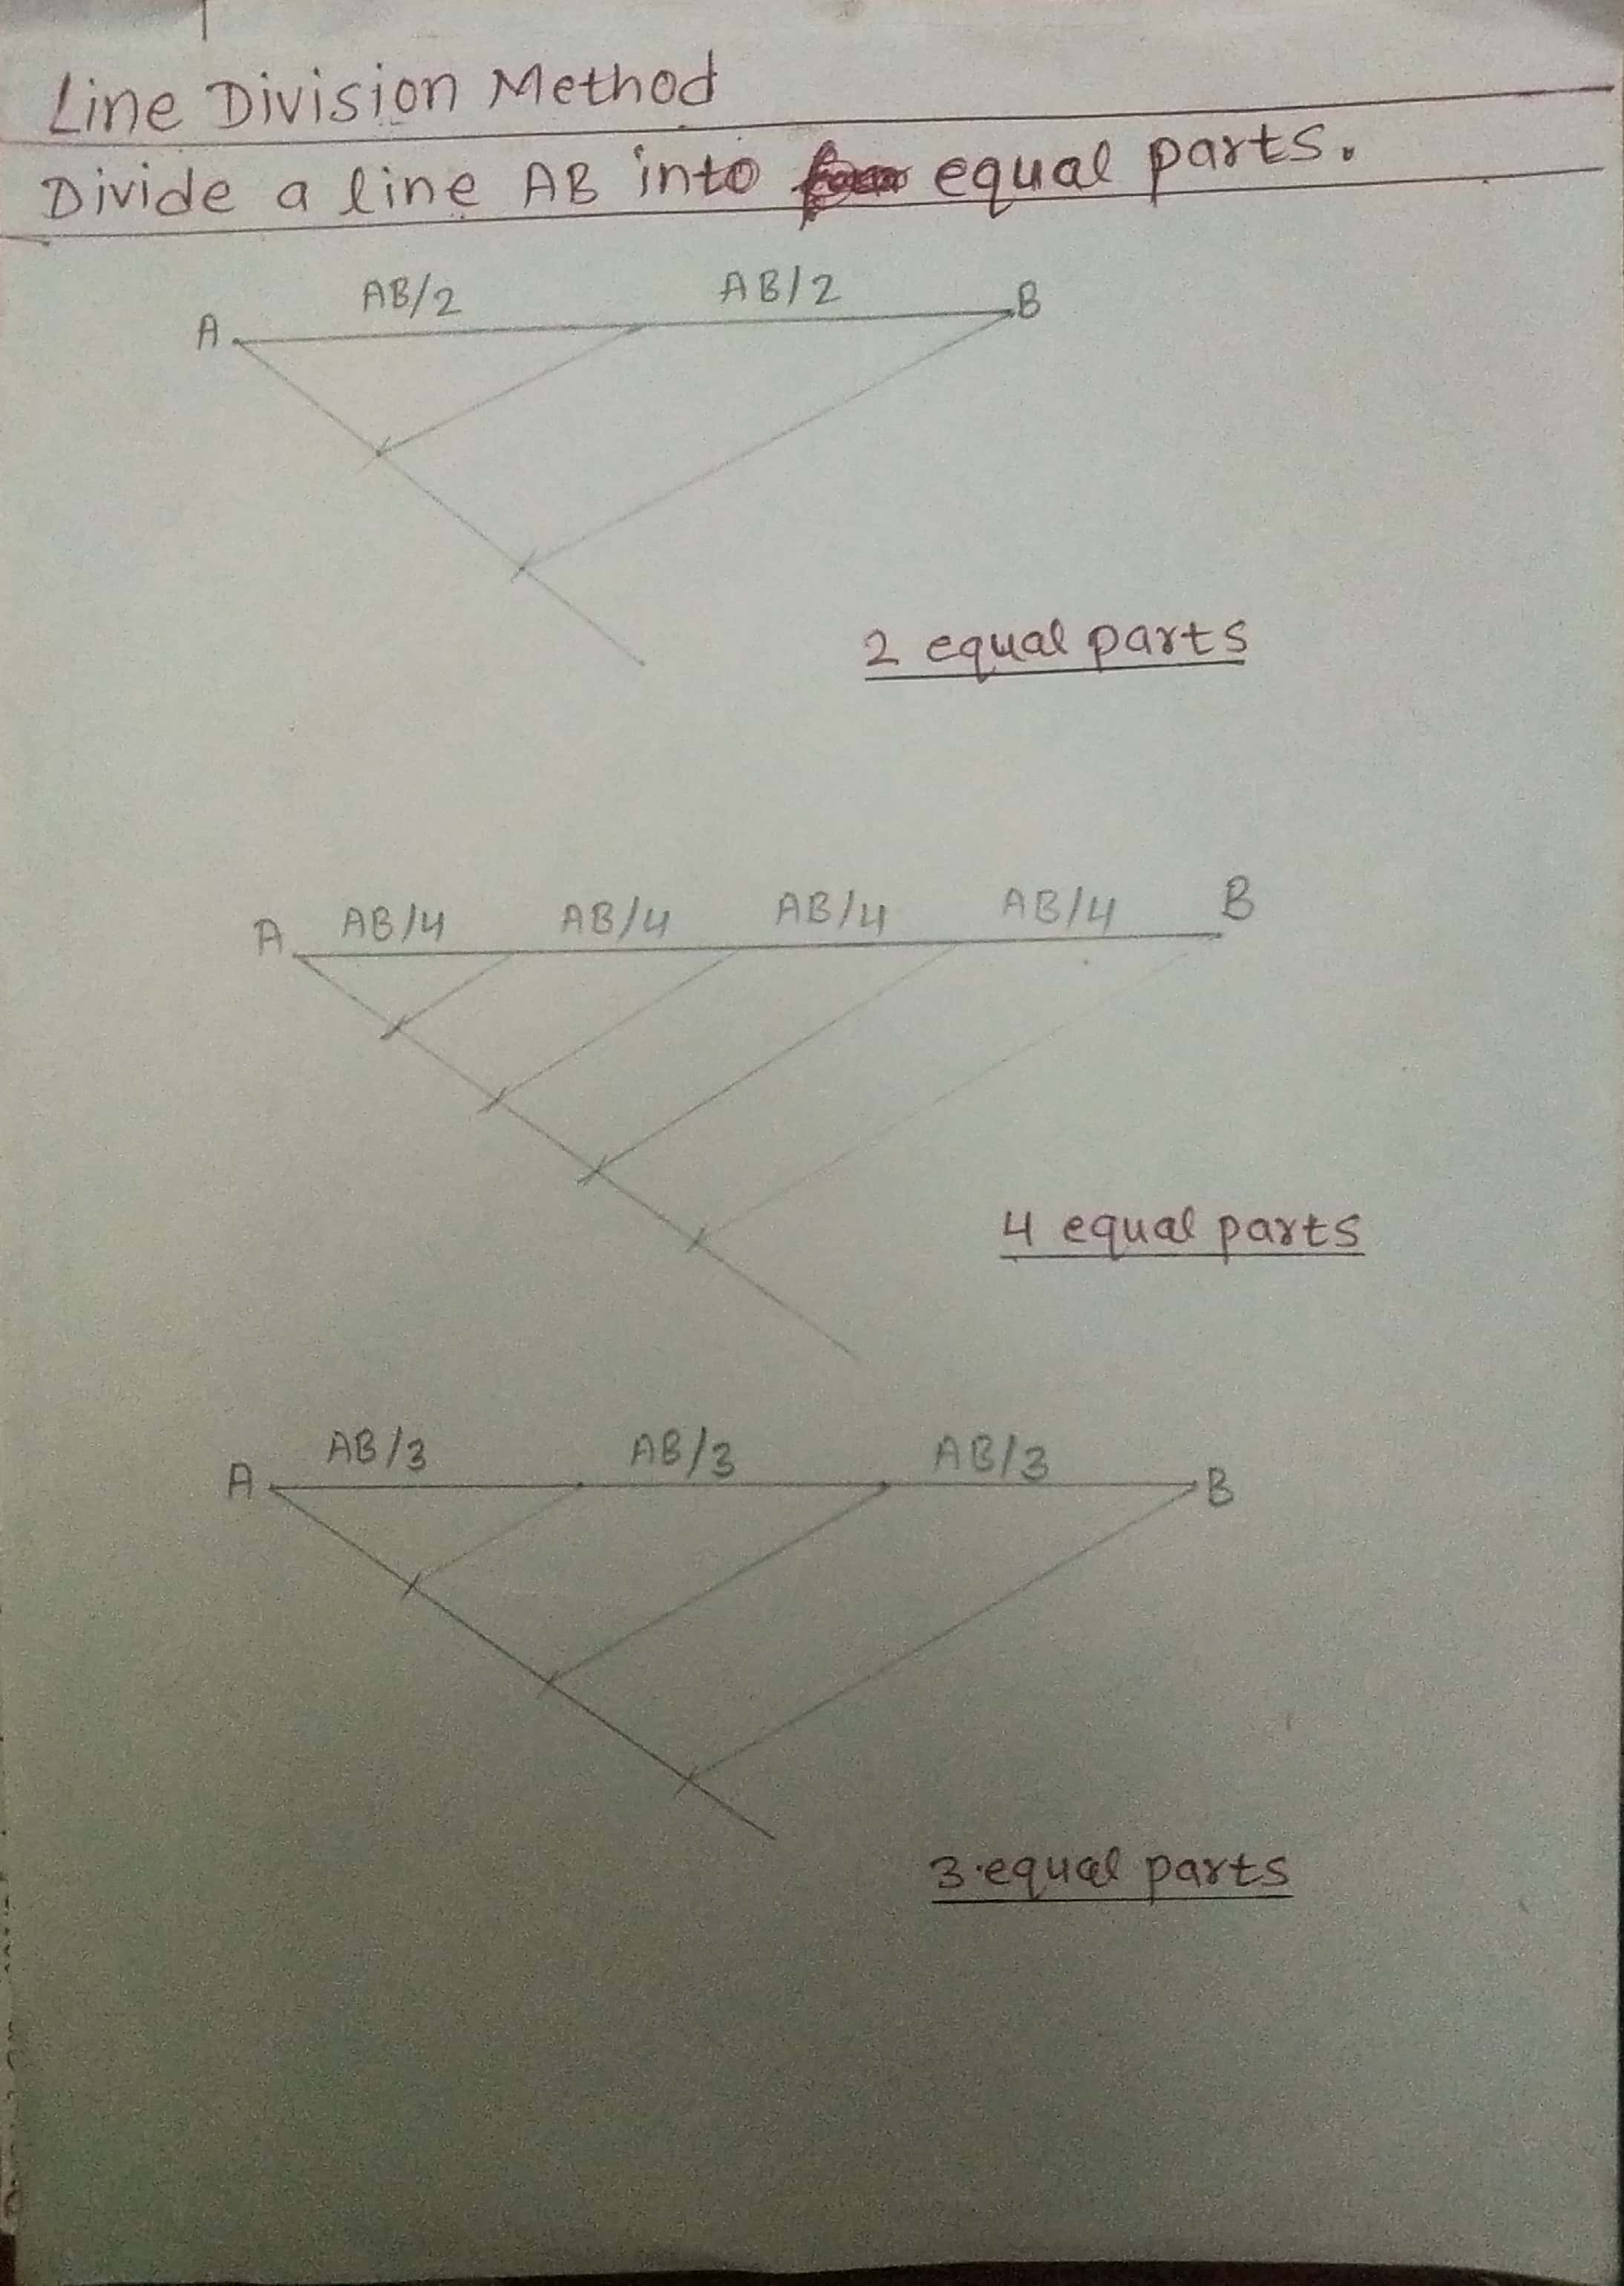 Line Division Method
Divide a line AB into equal parts.
AB/2 AB/2
A B
2 equal parts
A AB/4 AB/4 AB/4 AB/4 B
4 equal parts
AB/3 AB/3 AB/3
A B
3 equal parts